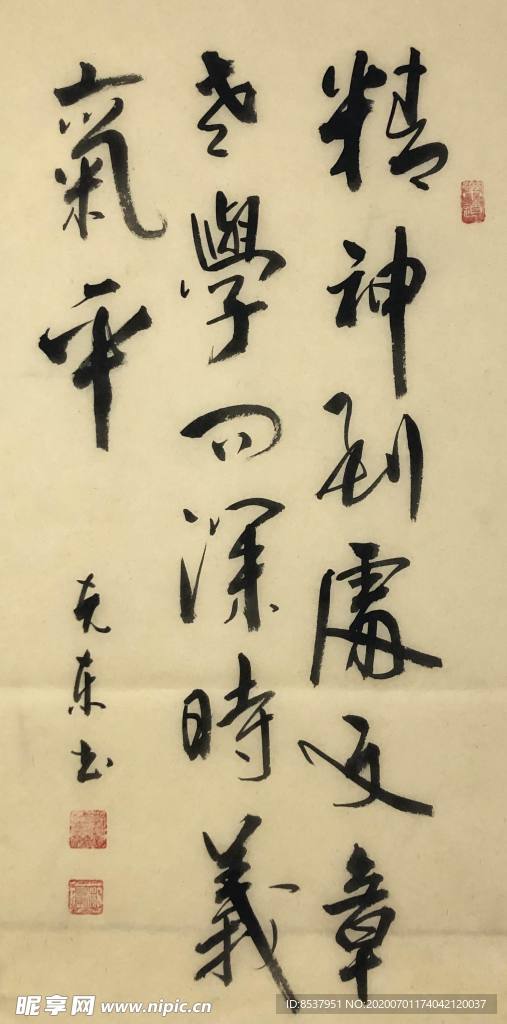 精神到處文章
老學问深時義
氣平
克东书
昵享网 www.nipic.cn
ID:8537951 NO:20200701174042120037